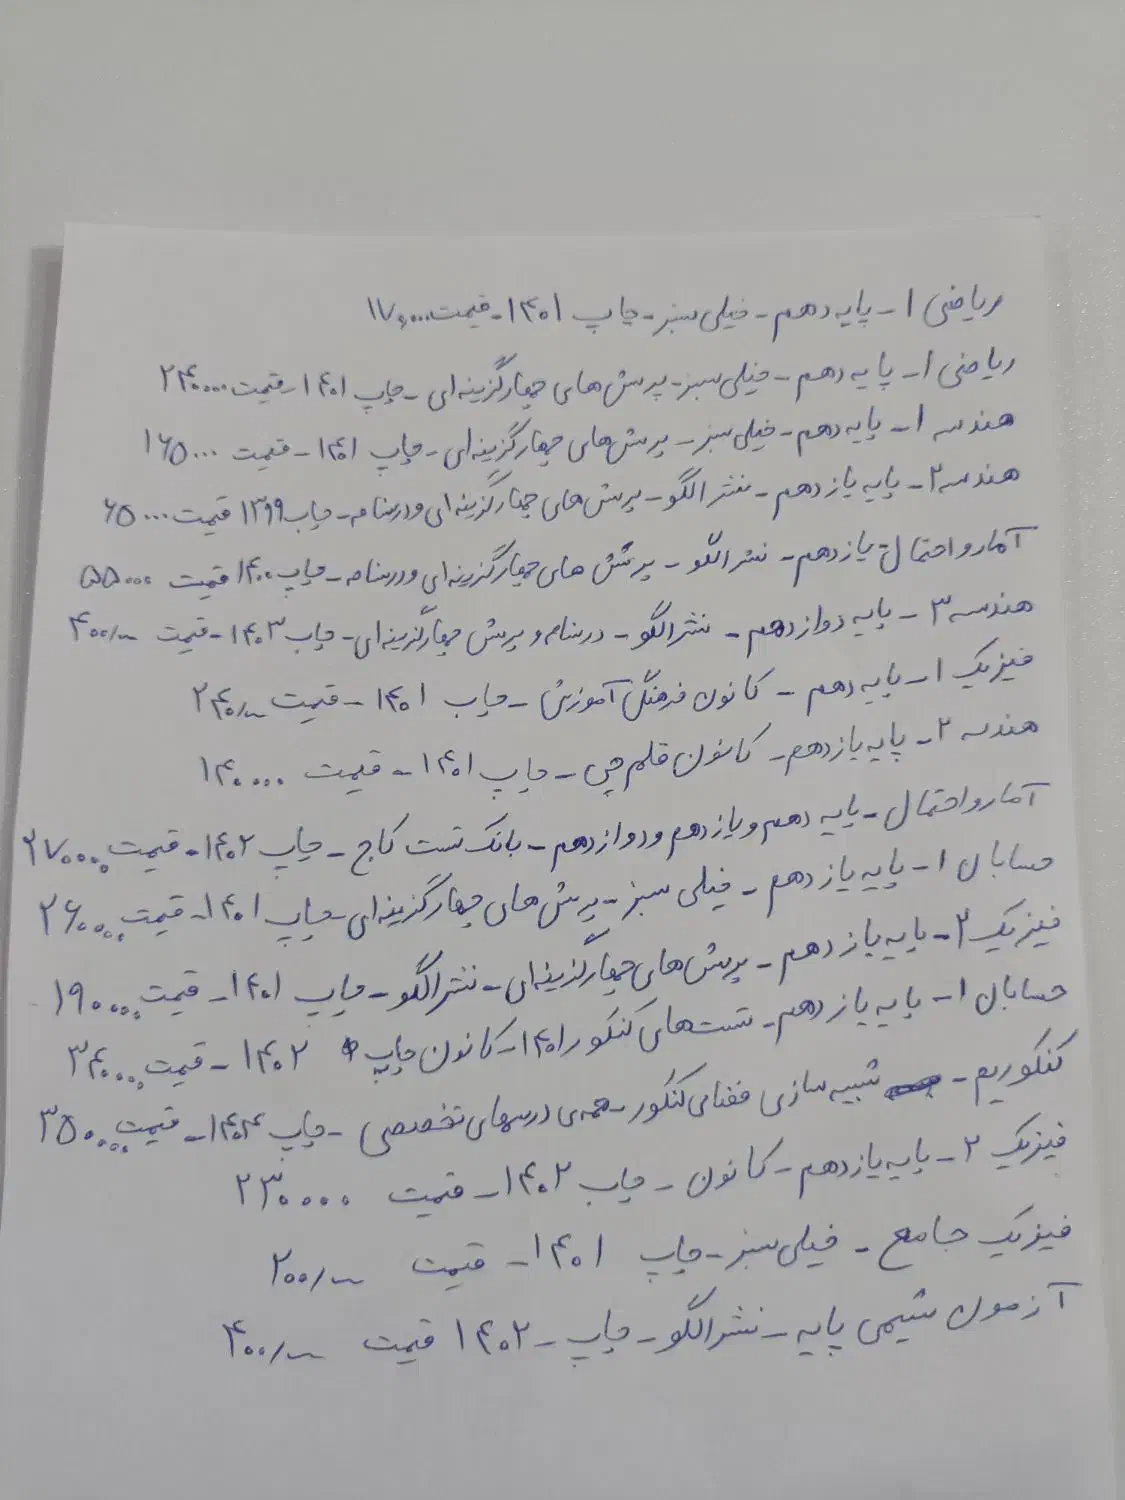 ریاضی ۱ - پایه دهم - خیلی سبز - چاپ ۱۴۰۱ - قیمت ۱۷۰۰۰۰
ریاضی ۱ - پایه دهم - خیلی سبز - پرسش های چهارگزینه ای - چاپ ۱۴۰۱ - قیمت ۲۴۰۰۰۰
هندسه ۱ - پایه دهم - خیلی سبز - پرسش های چهارگزینه ای - چاپ ۱۴۰۱ - قیمت ۱۶۵۰۰۰
هندسه ۲ - پایه یازدهم - نشر الگو - پرسش های چهارگزینه ای و درسنامه - چاپ ۱۳۹۹ قیمت ۶۵۰۰۰
آمار و احتمال - یازدهم - نشر الگو - پرسش های چهارگزینه ای و درسنامه - چاپ ۱۴۰۰ قیمت ۵۵۰۰۰
هندسه ۳ - پایه دوازدهم - نشر الگو - درسنامه و پرسش چهارگزینه ای - چاپ ۱۴۰۳ - قیمت ۴۰۰/۰۰۰
فیزیک ۱ - پایه دهم - کانون فرهنگی آموزش - چاپ ۱۴۰۱ - قیمت ۲۴۰/۰۰۰
هندسه ۲ - پایه یازدهم - کانون قلم چی - چاپ ۱۴۰۱ - قیمت ۱۴۰۰۰۰
آمار و احتمال - پایه دهم و یازدهم و دوازدهم - بانک تست کاج - چاپ ۱۴۰۲ - قیمت ۲۷۰۰۰۰
حسابان ۱ - پایه یازدهم - خیلی سبز - پرسش های چهارگزینه ای - چاپ ۱۴۰۱ - قیمت ۲۶۰۰۰۰
فیزیک ۲ - پایه یازدهم - پرسش های چهارگزینه ای - نشر الگو - چاپ ۱۴۰۱ - قیمت ۱۹۰۰۰۰
حسابان ۱ - پایه یازدهم - تست های کنکور ۱۴۰۱ - کانون چاپ ۱۴۰۲ - قیمت ۳۴۰۰۰۰
کنکوریم - شبیه سازی فضای کنکور - همه ی درسهای تخصصی - چاپ ۱۴۰۴ - قیمت ۳۵۰۰۰۰
فیزیک ۲ - پایه یازدهم - کانون - چاپ ۱۴۰۲ - قیمت ۲۳۰۰۰۰
فیزیک جامع - خیلی سبز - چاپ ۱۴۰۱ - قیمت ۲۰۰/۰۰۰
آزمون شیمی پایه - نشر الگو - چاپ - ۱۴۰۲ قیمت ۴۰۰/۰۰۰